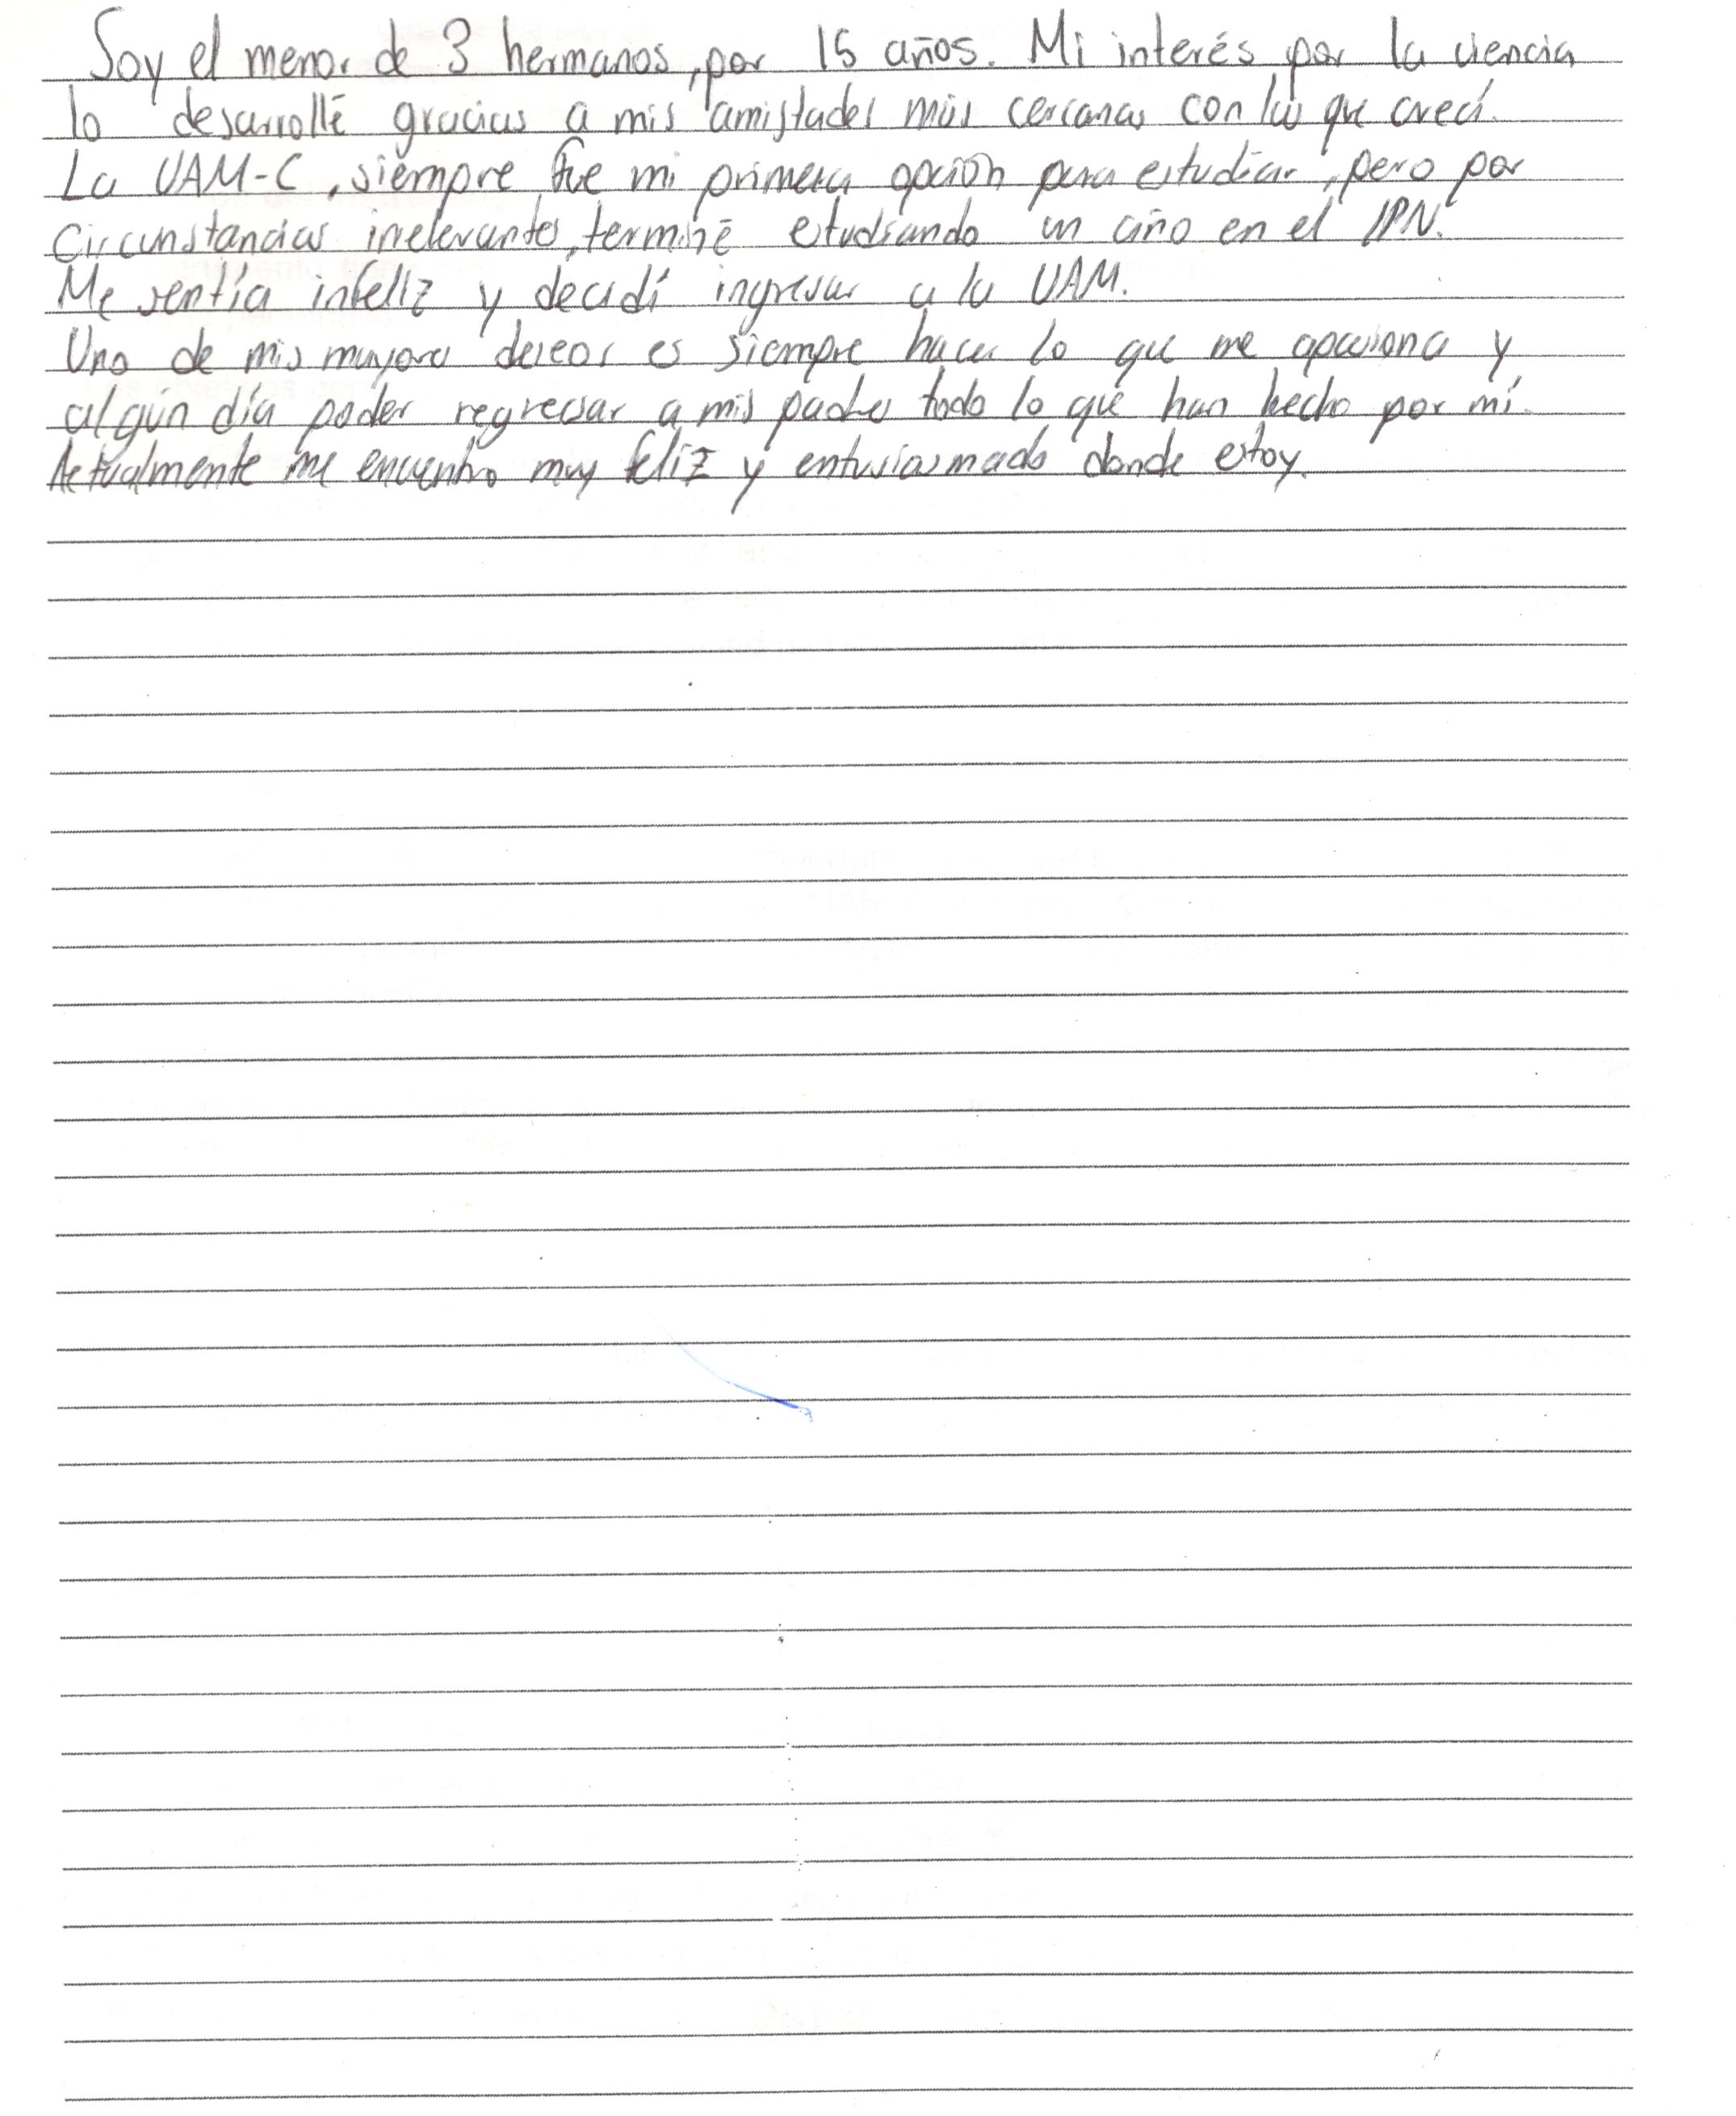 Soy el menor de 3 hermanos, por 15 años. Mi interés por la ciencia
lo desarrollé gracias a mis amistades más cercanas con las que crecí.
La UAM-C, siempre fue mi primera opción para estudiar, pero por
circunstancias irrelevantes, terminé estudiando un año en el IPN.
Me sentía infeliz y decidí ingresar a la UAM.
Uno de mis mayores deseos es siempre hacer lo que me apasiona y
algún día poder regresar a mis padres todo lo que han hecho por mí.
Actualmente me encuentro muy feliz y entusiasmado donde estoy.